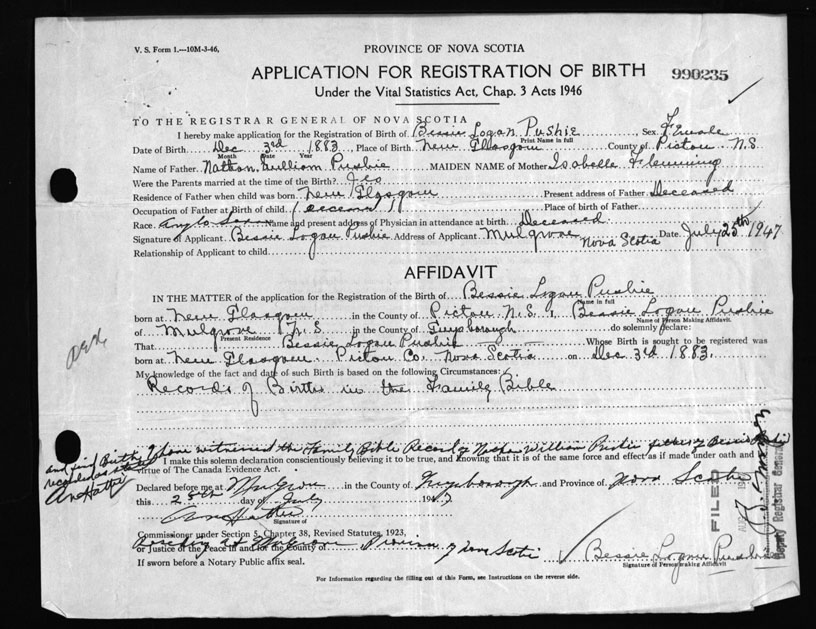 V. S. Form 1.—10M-3-46,
PROVINCE OF NOVA SCOTIA
APPLICATION FOR REGISTRATION OF BIRTH
990235
Under the Vital Statistics Act, Chap. 3 Acts 1946
TO THE REGISTRAR GENERAL OF NOVA SCOTIA
I hereby make application for the Registration of Birth of Bessie Logan Pushie Sex Female
Print Name in full
Date of Birth Dec 3rd 1883 Place of Birth New Glasgow County of Pictou N.S
Month Date Year
Name of Father Nathan William Pushie MAIDEN NAME of Mother Isabelle Flemming
Were the Parents married at the time of Birth? Yes
Residence of Father when child was born New Glasgow Present address of Father Deceased
Occupation of Father at Birth of child Place of birth of Father
Race Name and present address of Physician in attendance at birth Deceased.
Signature of Applicant Bessie Logan Pushie Address of Applicant Mulgrave Nova Scotia Date July 25th 1947
Relationship of Applicant to child
AFFIDAVIT
IN THE MATTER of the application for the Registration of the Birth of Bessie Logan Pushie
Name in full
born at New Glasgow in the County of Pictou N.S. I, Bessie Logan Pushie
Name of Person Making Affidavit.
of Mulgrave N.S. in the County of Guysborough do solemnly declare:
Present Residence
That Bessie Logan Pushie Whose Birth is sought to be registered was
born at New Glasgow Pictou Co. Nova Scotia on Dec 3rd 1883.
My knowledge of the fact and date of such Birth is based on the following Circumstances:
Records of Births in the Family Bible
I have witnessed the Family Bible Record of William Pushie father of Bessie Pushie
and find Birth recorded as stated
I make this solemn declaration conscientiously believing it to be true, and knowing that it is of the same force and effect as if made under oath and in
virtue of The Canada Evidence Act.
Declared before me at Mulgrave in the County of Guysborough and Province of Nova Scotia
this 25th day of July 1947
Signature of
Commissioner under Section 5, Chapter 38, Revised Statutes, 1923,
or Justice of the Peace in and for the County of Province of Nova Scotia
Bessie Logan Pushie
Signature of Person making Affidavit
If sworn before a Notary Public affix seal.
For Information regarding the filling out of this Form, see Instructions on the reverse side.
FILED
Deputy Registrar General